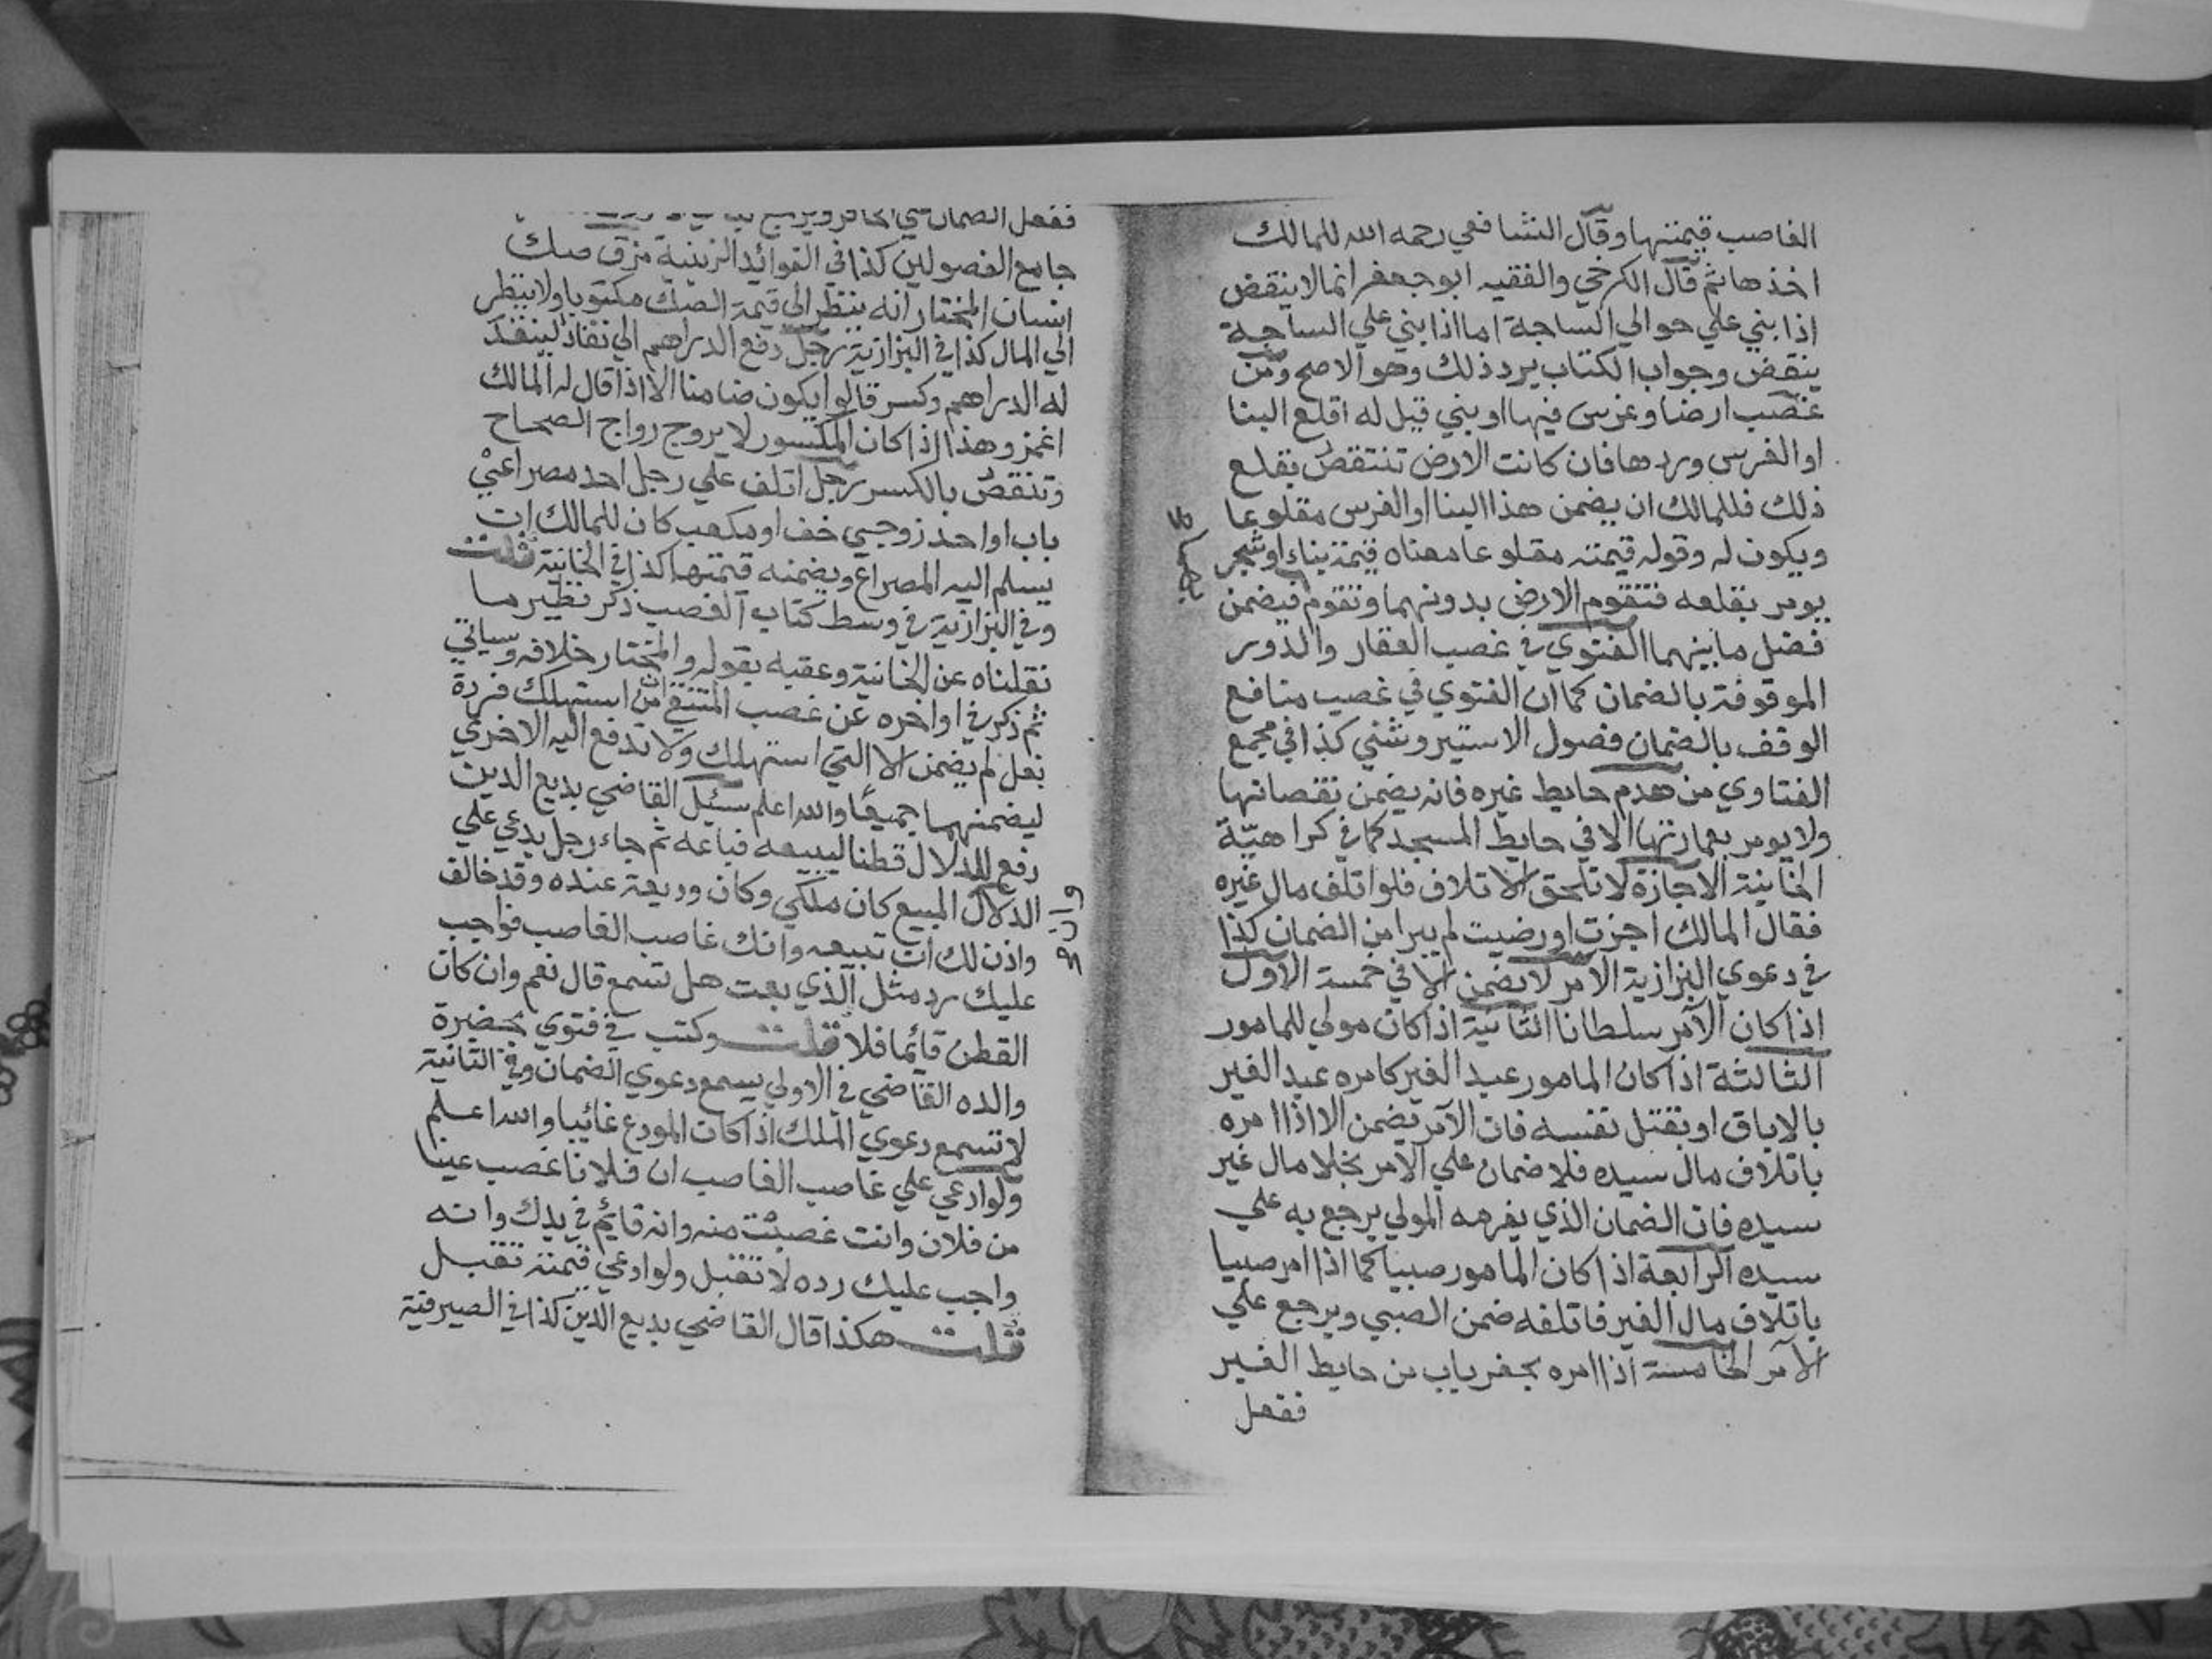 الغاصب قيمتها وقال الشافعي رحمه الله للمالك
اخذها ثم قال الكرخي والفقيه ابو جعفر انما لا ينقض
اذا بني علي حوالي الساجة اما اذا بني علي الساجة
ينقض وجواب الكتاب يرد ذلك وهو الاصح ومن
غصب ارضا وغرس فيها او بني قيل له اقلع البنا
او الغرس وردها فان كانت الارض تنتقص بقلع
ذلك فللمالك ان يضمن هذا البنا او الغرس مقلوعا
ويكون له وقوله قيمته مقلوعا معناه قيمة بناء او شجر
يومر بقلعه فتقوم الارض بدونهما وتقوم فيضمن
فضل ما بينهما الفتوي في غصب العقار والدور
الموقوفة بالضمان كما ان الفتوي في غصب منافع
الوقف بالضمان فصول الاستيروشني كذا في مجمع
الفتاوي من هدم حايط غيره فانه يضمن نقصانها
ولا يومر بعمارتها الا في حايط المسجد كما في كراهية
الخانية الاجازة لا تلحق الاتلاف فلو اتلف مال غيره
فقال المالك اجزت او رضيت لم يبرا من الضمان كذا
في دعوي البزازية الآمر لا يضمن الا في خمسة الاول
اذا كان الآمر سلطانا الثانية اذا كان مولي للمامور
الثالثة اذا كان المامور عبد الغير كامره عبد الغير
بالاباق او بقتل نفسه فان الآمر يضمن الا اذا امره
باتلاف مال سيده فلا ضمان علي الآمر بخلا مال غير
سيده فان الضمان الذي يغرمه المولي يرجع به علي
سيده الرابعة اذا كان المامور صبيا كما اذا امر صبيا
باتلاف مال الغير فاتلفه ضمن الصبي ويرجع علي
الآمر الخامسة اذا امره بحفر باب من حايط الغير
ففعل
ففعل الضمان علي الحافر ويرجع
جامع الفصولين كذا في الفوائد الزينية مزق صك
انسان المختار انه ينظر الي قيمة الصك مكتوبا ولا ينظر
الي المال كذا في البزازية رجل دفع الدراهم الي نقاد لينقد
له الدراهم وكسر قالوا يكون ضامنا الا اذا قال له المالك
اغمز وهذا اذا كان المكسور لا يروج رواج الصحاح
وتنقص بالكسر رجل اتلف علي رجل احد مصراعي
باب او احد زوجي خف او مكعب كان للمالك ان
يسلم اليه المصراع ويضمنه قيمتها كذا في الخانية قلت
وفي البزازية في وسط كتاب الغصب ذكر نظير ما
نقلناه عن الخانية وعقبه بقوله والمختار خلافه وسياتي
ثم ذكر في اواخره عن غصب المنتقي ان من استهلك فردة
نعل لم يضمن الا التي استهلك ولا تدفع اليه الاخري
ليضمنهما جميعا والله اعلم سئل القاضي بديع الدين
دفع للدلال قطنا ليبيعه فباعه ثم جاء رجل يدعي علي
الدلال المبيع كان ملكي وكان وديعة عنده وقد خالف
واذن لك ان تبيعه وانك غاصب الغاصب فواجب
عليك رد مثل الذي بعت هل تسمع قال نعم وان كان
القطن قائما فلا قلت وكتب في فتوي بحضرة
والده القاضي في الاولي يسمع دعوي الضمان وفي الثانية
لا تسمع دعوي الملك اذا كان المودع غائبا والله اعلم
ولو ادعي علي غاصب الغاصب ان فلانا غصب عينا
من فلان وانت غصبت منه وانه قائم في يدك وانه
واجب عليك رده لا تقبل ولو ادعي قيمته تقبل
قلت هكذا قال القاضي بديع الدين كذا في الصيرفية